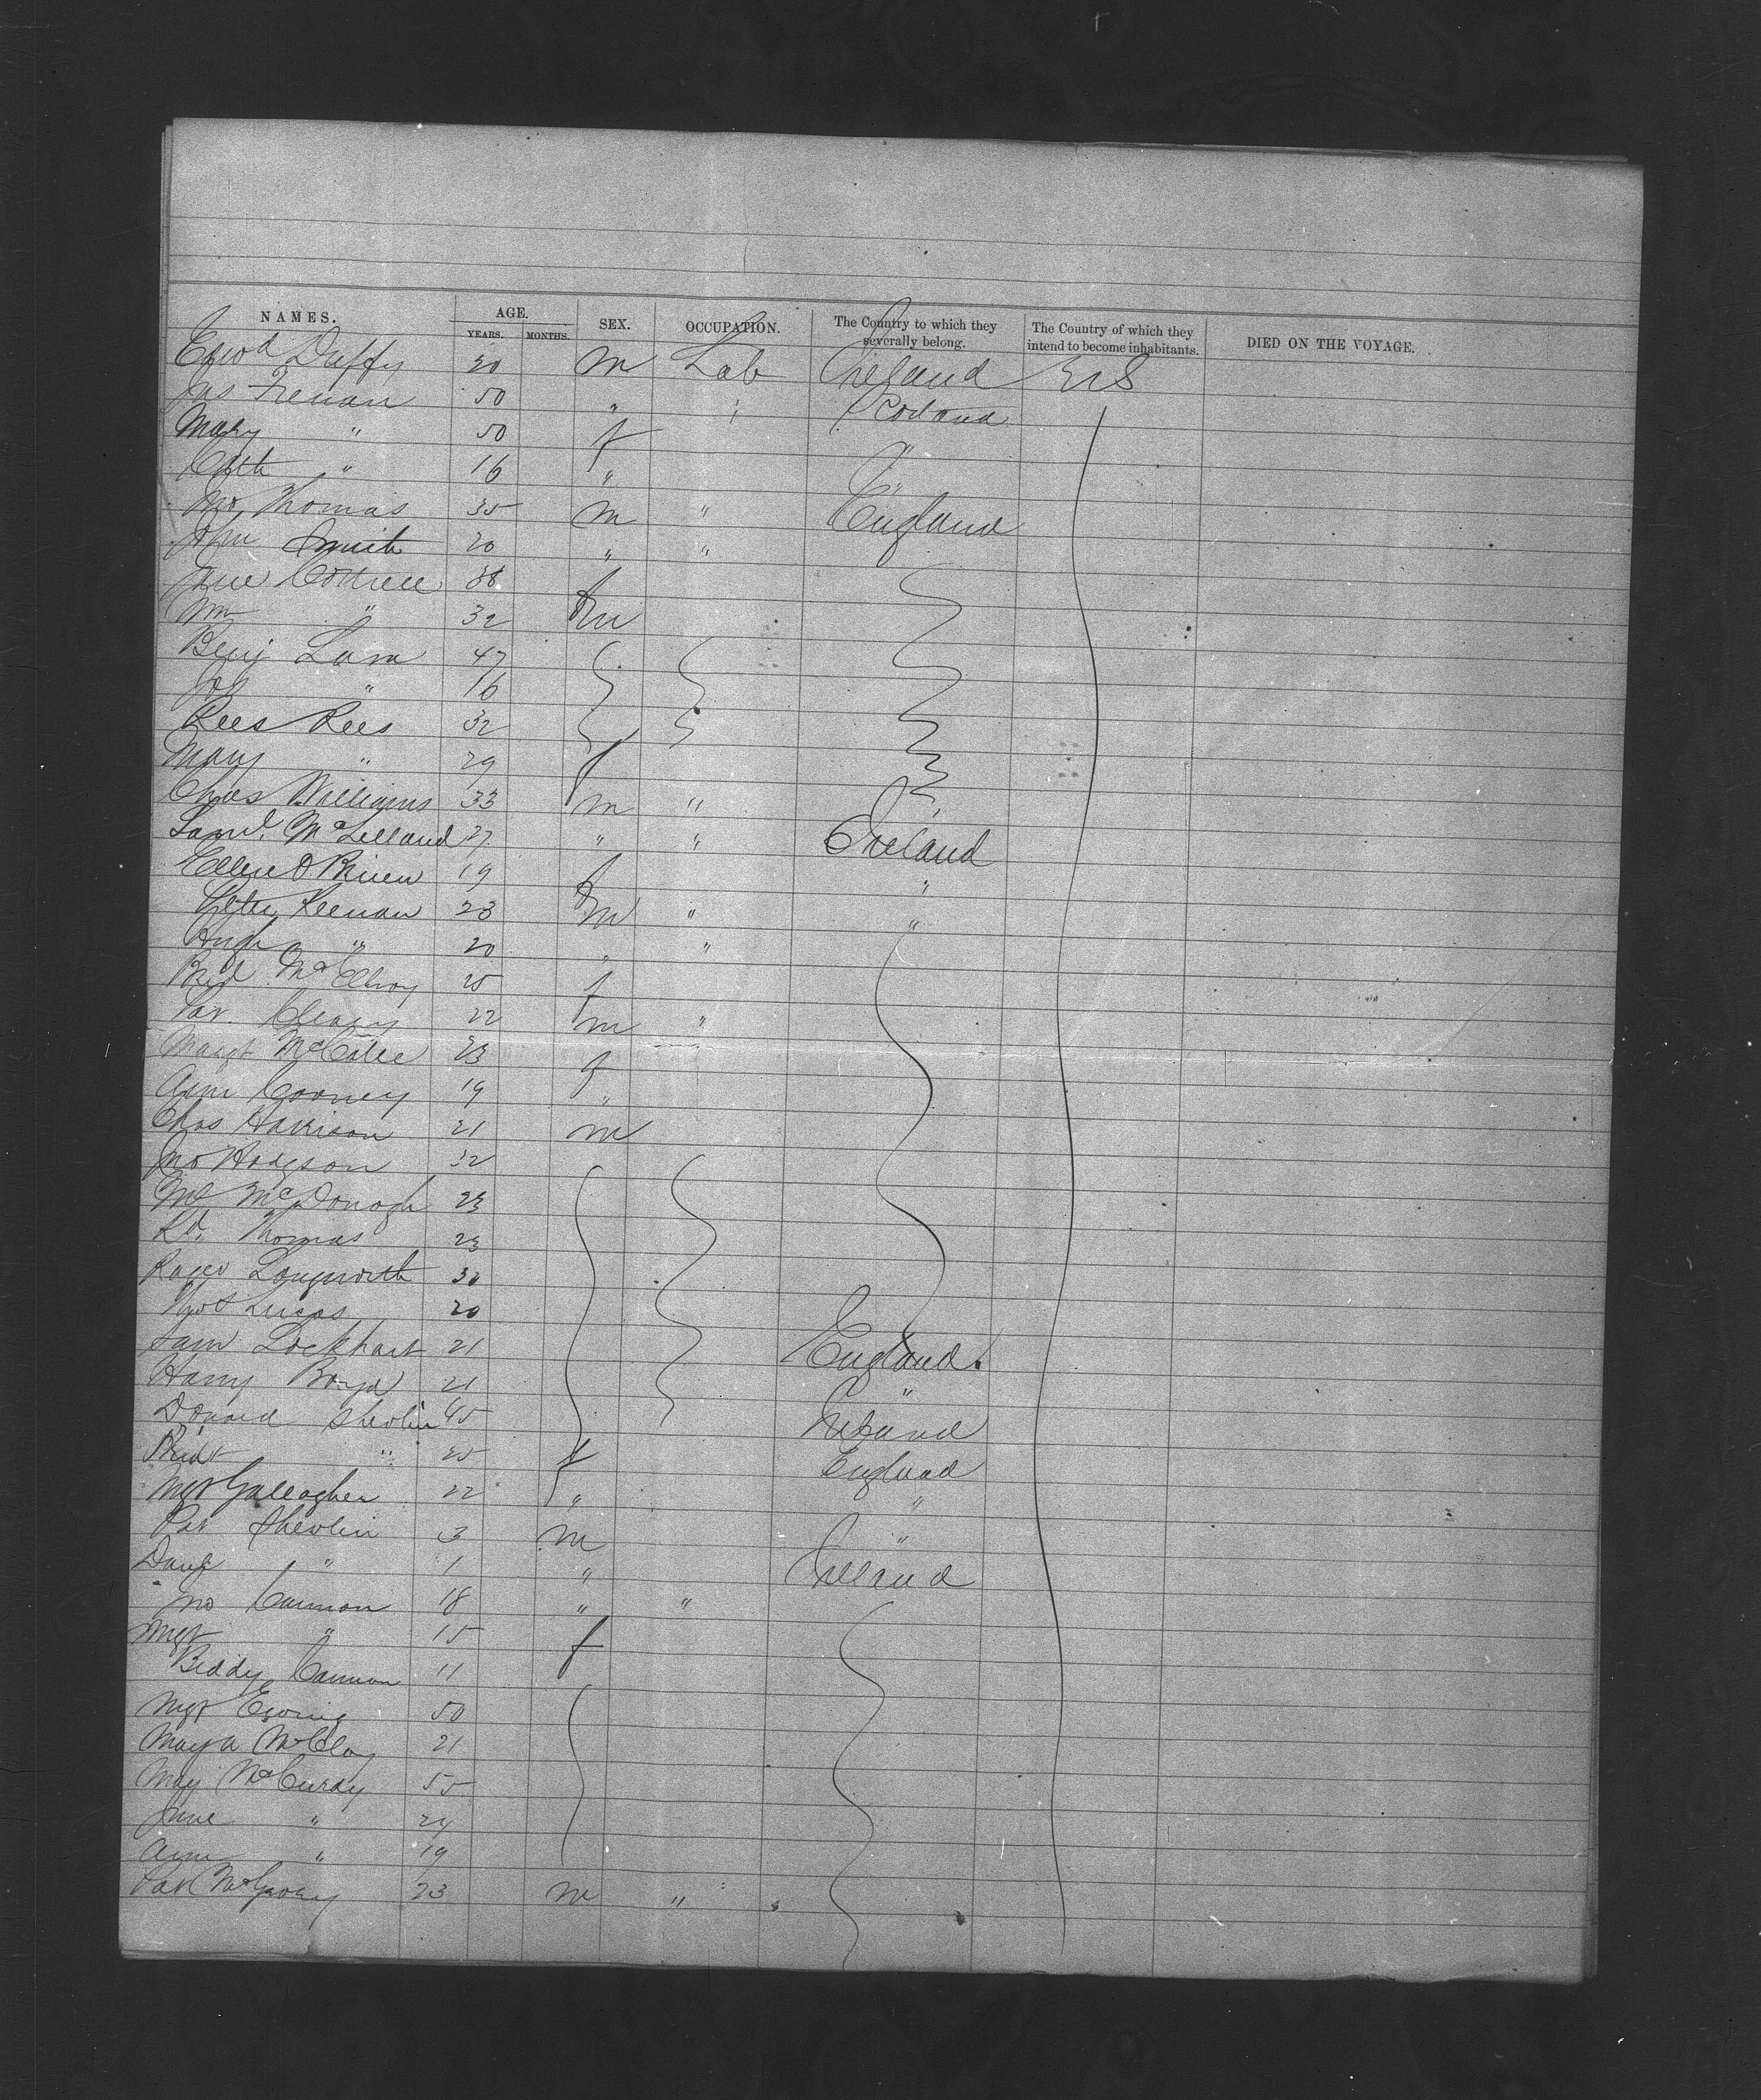 NAMES. AGE. SEX. OCCUPATION. The Country to which they severally belong. The Country of which they intend to become inhabitants. DIED ON THE VOYAGE.
YEARS. MONTHS.
Edwd Duffy 20 m Lab Ireland U S
Jas Trenan 50 " " Scotland
Mary " 50 f "
Cath " 16 " "
Jno Thomas 35 m " England
John Smith 20 " "
Jane Cottrell 38 f
Wm " 32 m
Benj Lam 47
Jos " 16
Rees Rees 32
Mary " 29 f
Chas Williams 33 m "
Saml. McLelland 27 " " Ireland
Ellen O'Brien 19 f "
Peter Keenan 23 m " "
Hugh " 20 " "
Brid McElroy 25 f
Pat Cleary 22 m "
Margt McCabe 23 f
Ann Cooney 19 "
Chas Harrison 21 m
Jno Hodgson 32
Ml McDonogh 23
Rd. Thomas 23
Roger Longworth 30
Thos Lucas 20
Sam Lockhart 21 England
Harry Boyd 21 "
Donald Shevlin 45 Ireland
Bridt " 25 f England
Mgt Gallagher 22 " "
Pat Shevlin 3 m "
Danl " 1 " Ireland
Jno Cannon 18 " "
Mgt " 15 f
Biddy Cannon 11
Mgt Ewing 50
Mary A McClay 21
May McCurdy 55
Jane " 24
Ann " 19
Pat McGroey 23 m "